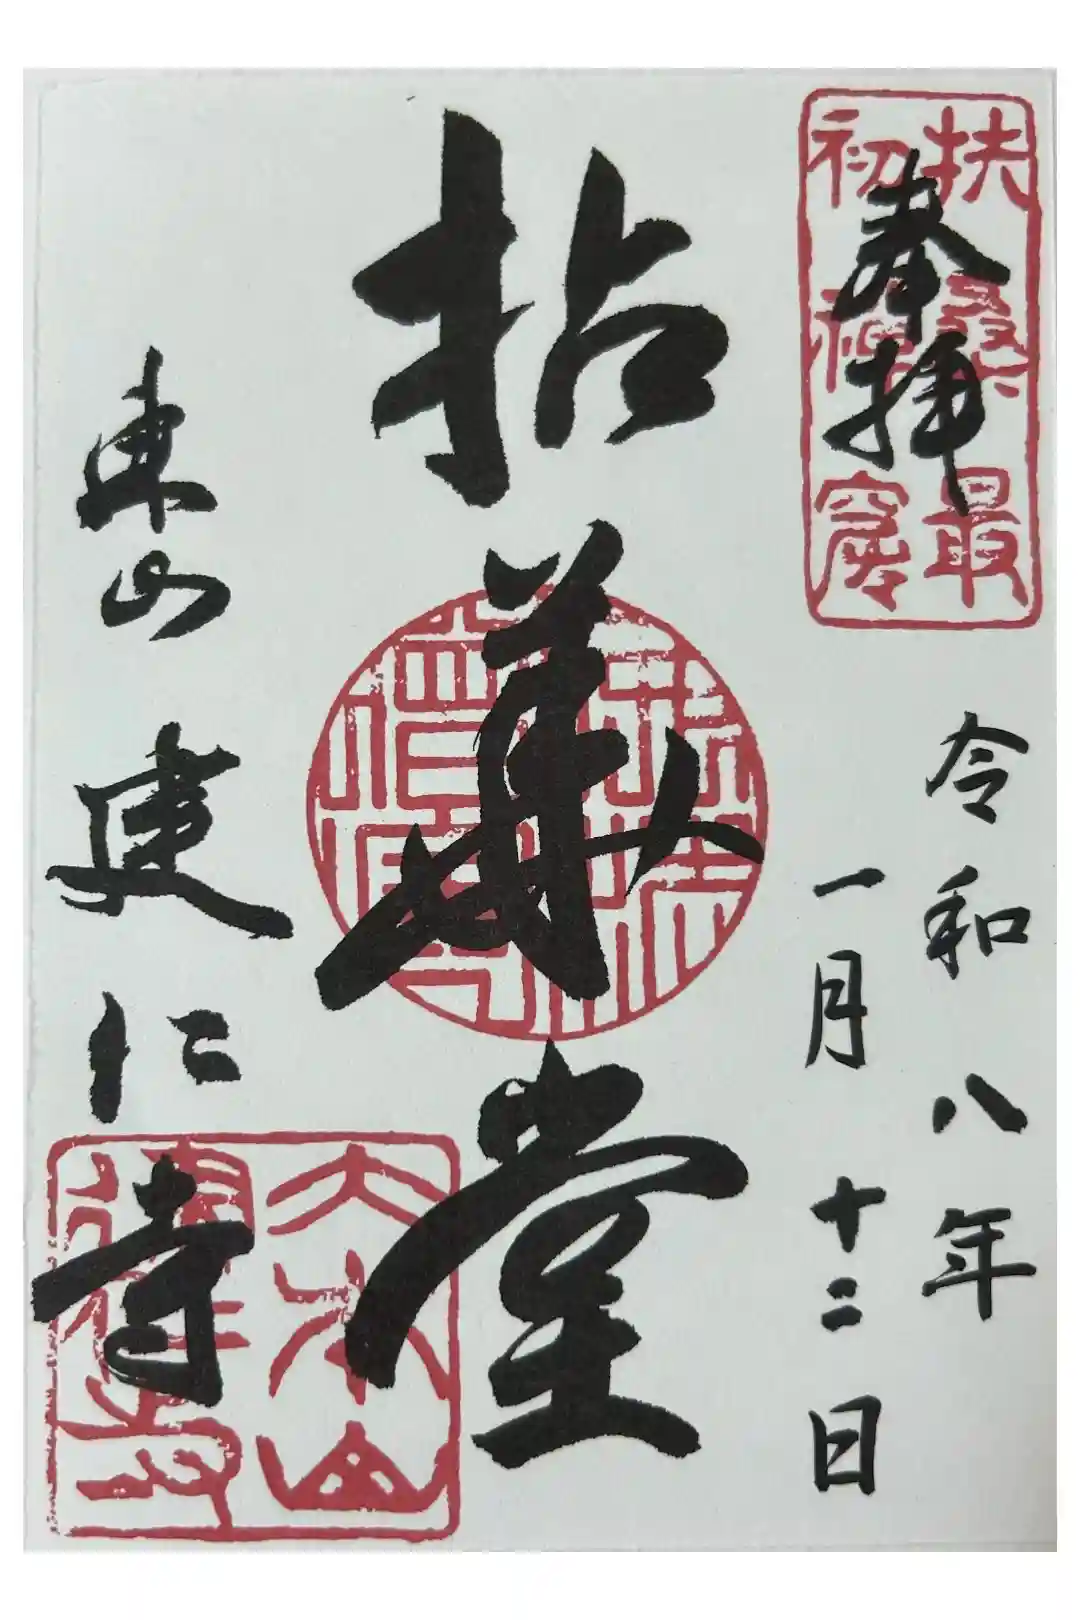 奉拝
扶桑最
初禅窟
令和八年
一月十二日
拈華堂
東山建仁寺
大本山
建仁寺